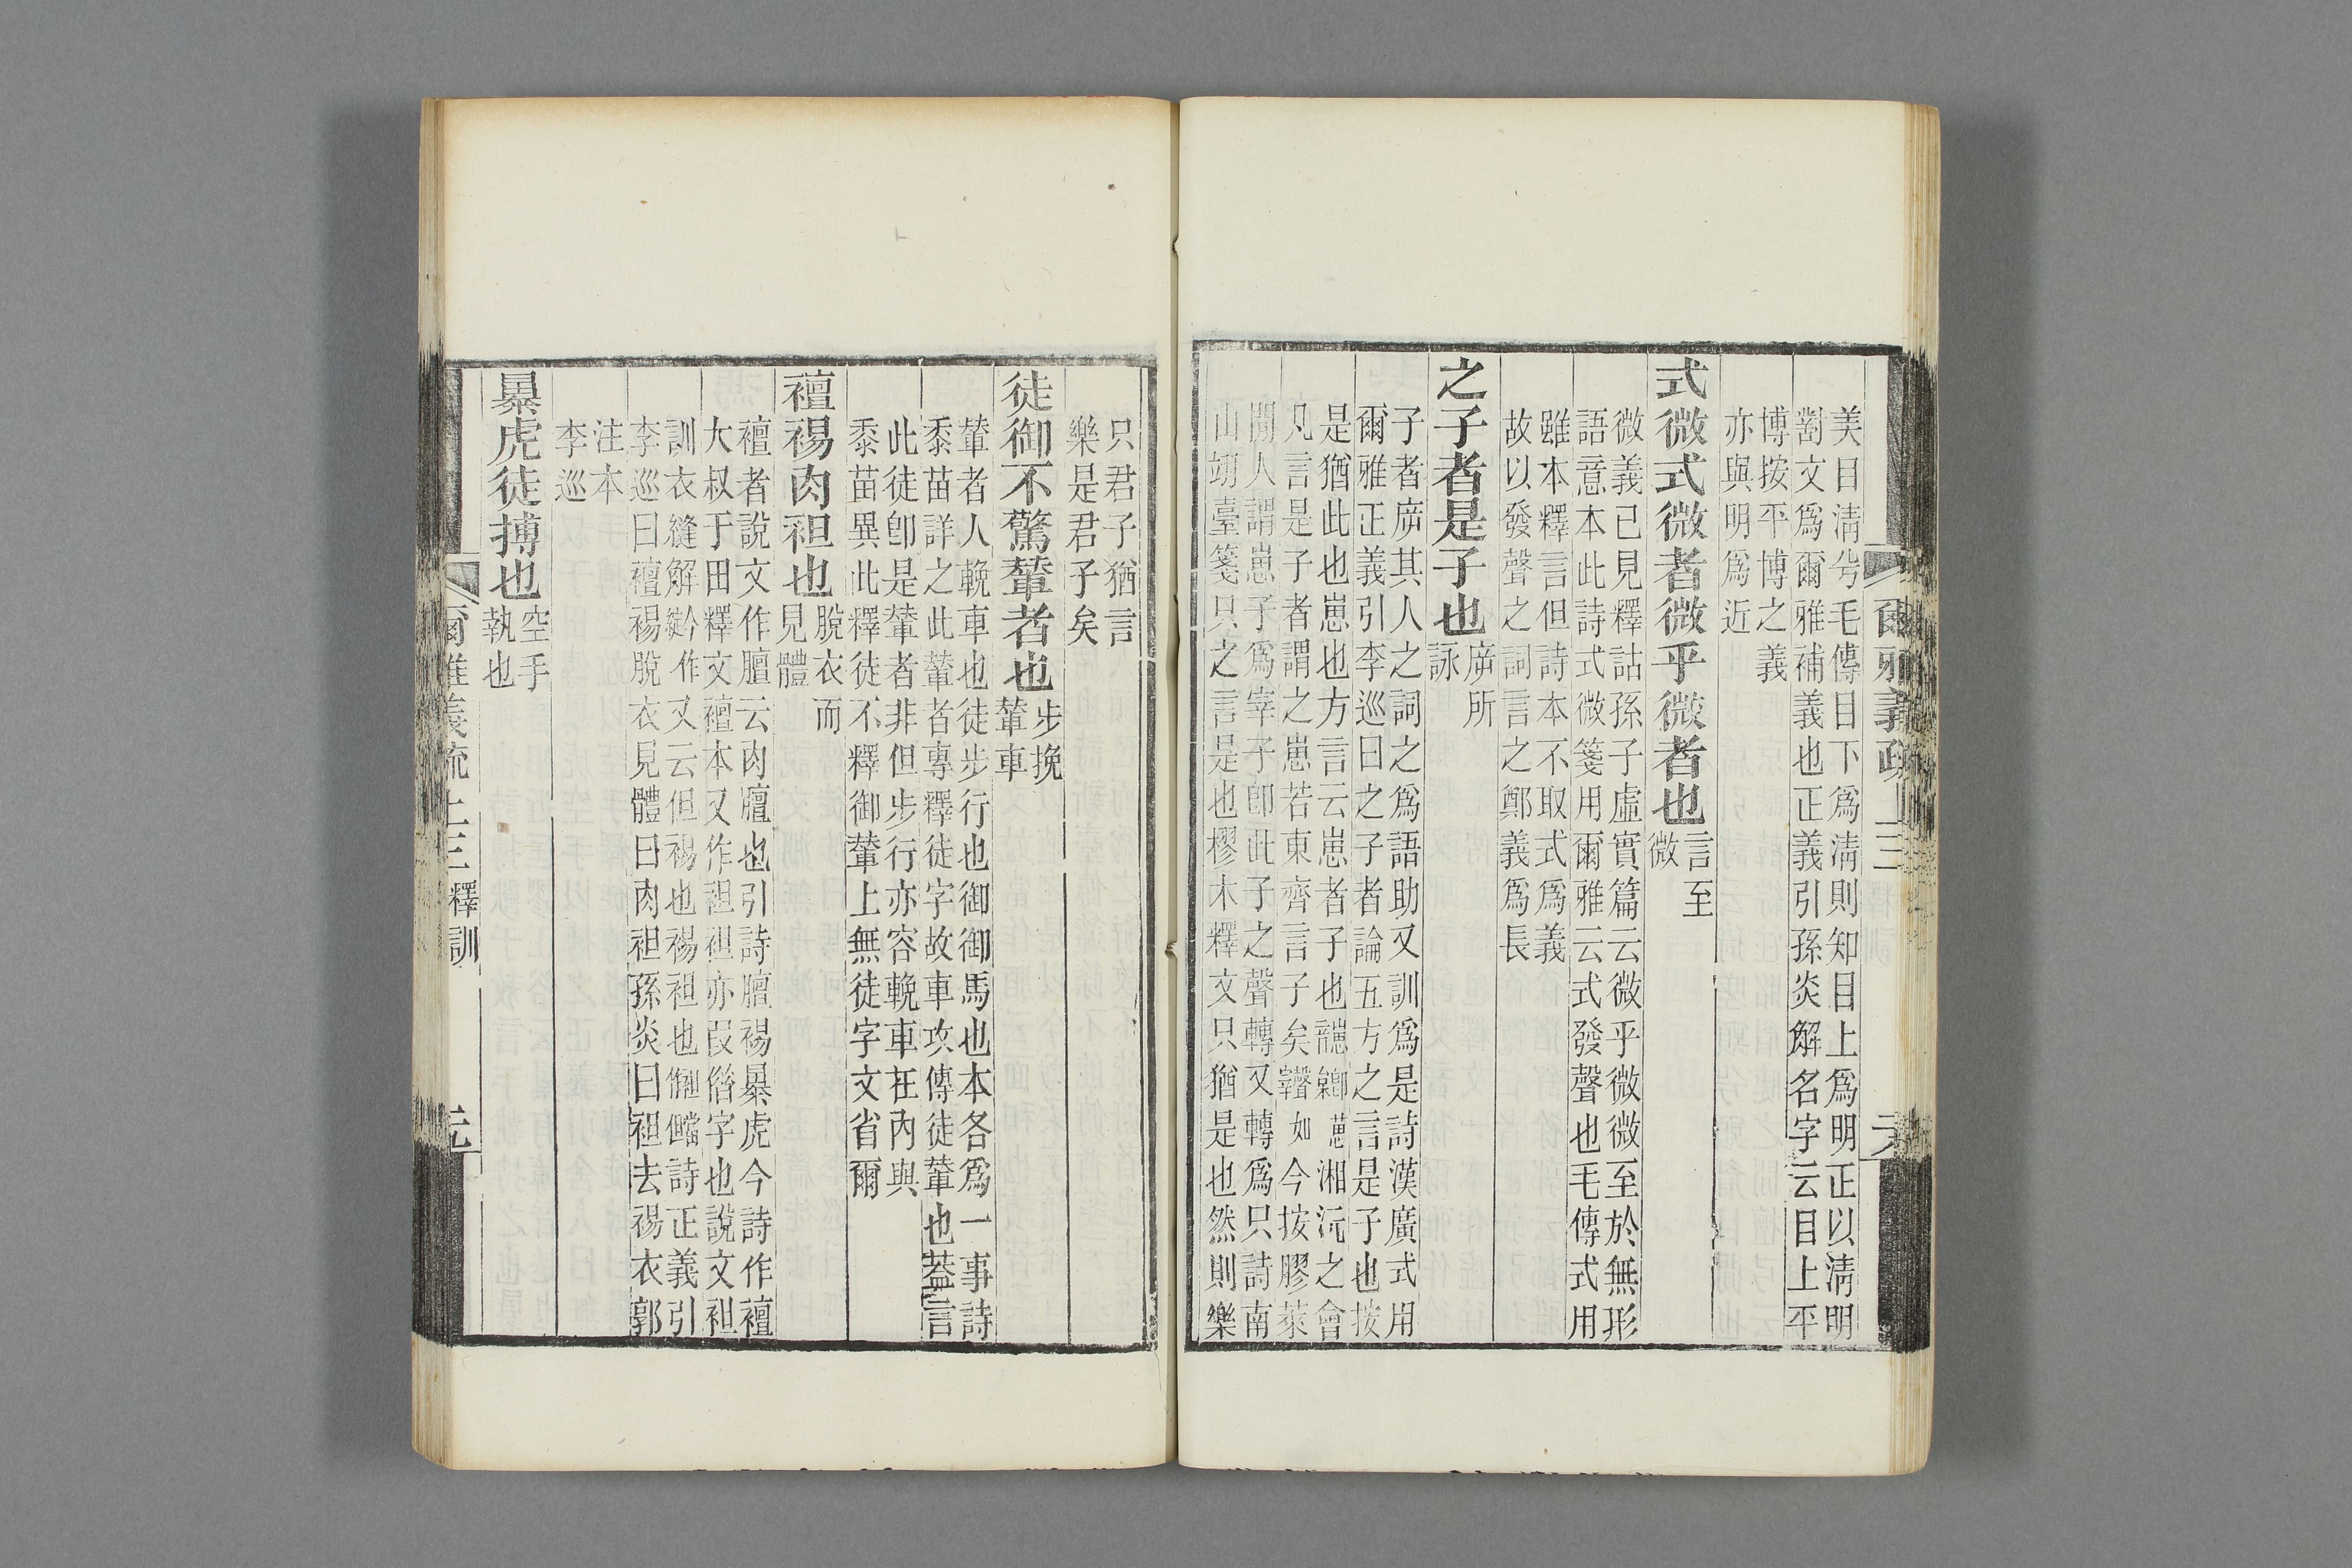 爾雅義疏 上三
美目淸兮毛傳目下爲淸則知目上爲明正以淸明
對文爲爾雅補義也正義引孫炎解名字云目上平
博按平博之義
亦與明爲近
式微式微者微乎微者也
言至
微
微義已見釋詁孫子虛實篇云微乎微微至於無形
語意本此詩式微箋用爾雅云式發聲也毛傳式用
雖本釋言但詩本不取式爲義
故以發聲之詞言之鄭義爲長
之子者是子也
斥所
詠
子者斥其人之詞之爲語助又訓爲是詩漢廣式用
爾雅正義引李巡曰之子者論五方之言是子也按
是猶此也崽也方言云崽者子也湘沅之會
凡言是子者謂之崽若東齊言子矣聲如今按膠萊
閒人謂崽子爲宰子卽此子之聲轉又轉爲只詩南
山㘴臺箋只之言是也樛木釋文只猶是也然則樂
只君子猶言
樂是君子矣
徒御不驚輦者也
步挽
輦車
輦者人輓車也徒步行也御御馬也本各爲一事詩
黍苗詳之此輦者專釋徒字故車攻傳徒輦也葢言
此徒卽是輦者非但步行亦容輓車在內與
黍苗異此釋徒不釋御輦上無徒字文省爾
襢裼肉袒也
脫衣而
見體
襢者說文作膻云肉膻也引詩膻裼暴虎今詩作襢
大叔于田釋文襢本又作袒袒亦叚偺字也說文袒
訓衣縫解作又云但裼也裼袒也詩正義引
李巡曰襢裼脫衣見體曰肉袒孫炎曰袒去裼衣郭
注本
李巡
暴虎徒搏也
空手
執也
爾雅義疏 上三 釋訓